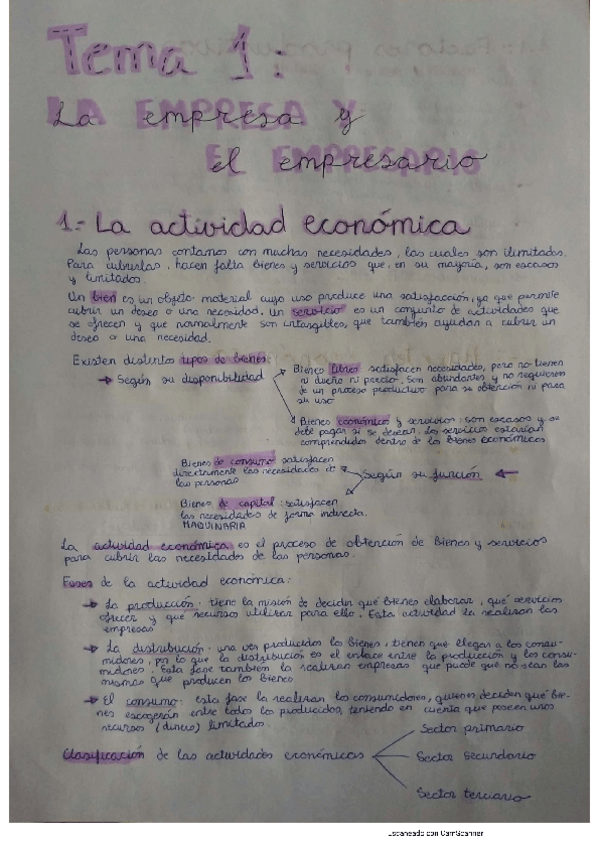 Tema 1:
La empresa y
el empresario
1.- La actividad económica
Las personas contamos con muchas necesidades, las cuales son ilimitadas.
Para cubrirlas, hacen falta bienes y servicios que, en su mayoría, son escasos
y limitados.
Un bien es un objeto material cuyo uso produce una satisfacción, ya que permite
cubrir un deseo o una necesidad. Un servicio es un conjunto de actividades que
se ofrecen y que normalmente son intangibles, que también ayudan a cubrir un
deseo o una necesidad.
Existen distintos tipos de bienes
→ Según su disponibilidad
Bienes libres satisfacen necesidades, pero no tienen
ni dueño ni precio. Son abundantes y no requieren
de un proceso productivo para su obtención ni para
su uso
Bienes económicos y servicios: son escasos y se
debe pagar si se desean. Los servicios estarían
comprendidos dentro de los bienes económicos
Según su función ←
Bienes de consumo satisfacen
directamente las necesidades de
las personas
Bienes de capital: satisfacen
las necesidades de forma indirecta.
MAQUINARIA
La actividad económica es el proceso de obtención de bienes y servicios
para cubrir las necesidades de las personas.
Fases de la actividad económica:
→ La producción: tiene la misión de decidir qué bienes elaborar, qué servicios
ofrecer y qué recursos utilizar para ello. Esta actividad la realizan las
empresas
→ La distribución: una vez producidos los bienes, tienen que llegar a los consu-
midores, por lo que la distribución es el enlace entre la producción y los consu-
midores. Esta fase también la realizan empresas que puede que no sean las
mismas que producen los bienes
→ El consumo: esta fase la realizan los consumidores, quienes deciden qué bie-
nes escogerán entre todos los producidos, teniendo en cuenta que poseen unos
recursos (dinero) limitados.
Clasificación de las actividades económicas
Sector primario
Sector secundario
Sector terciario
Escaneado con CamScanner